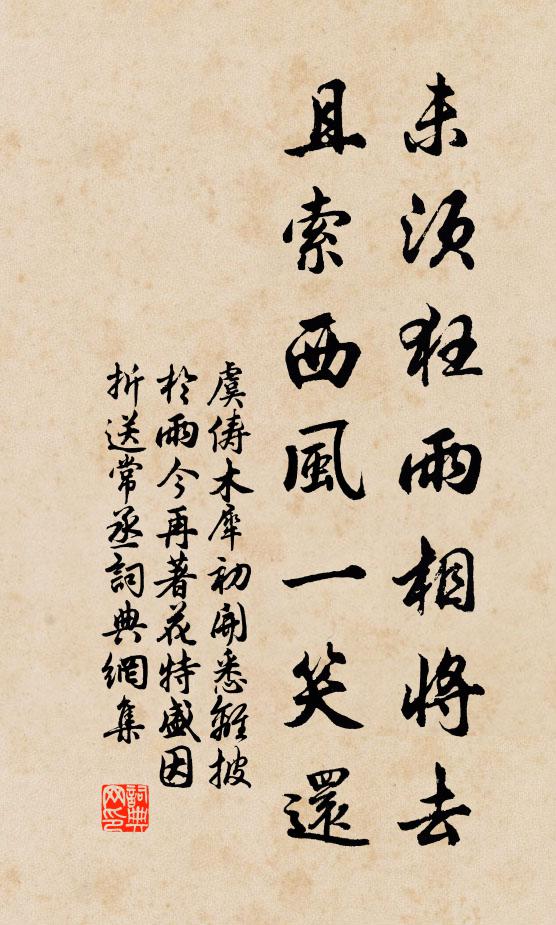 未須狂雨相將去
且索西風一笑還
虞儔木犀初開悉離披
於雨今再著花特盛因
折送常丞詞典網集
詞典網印